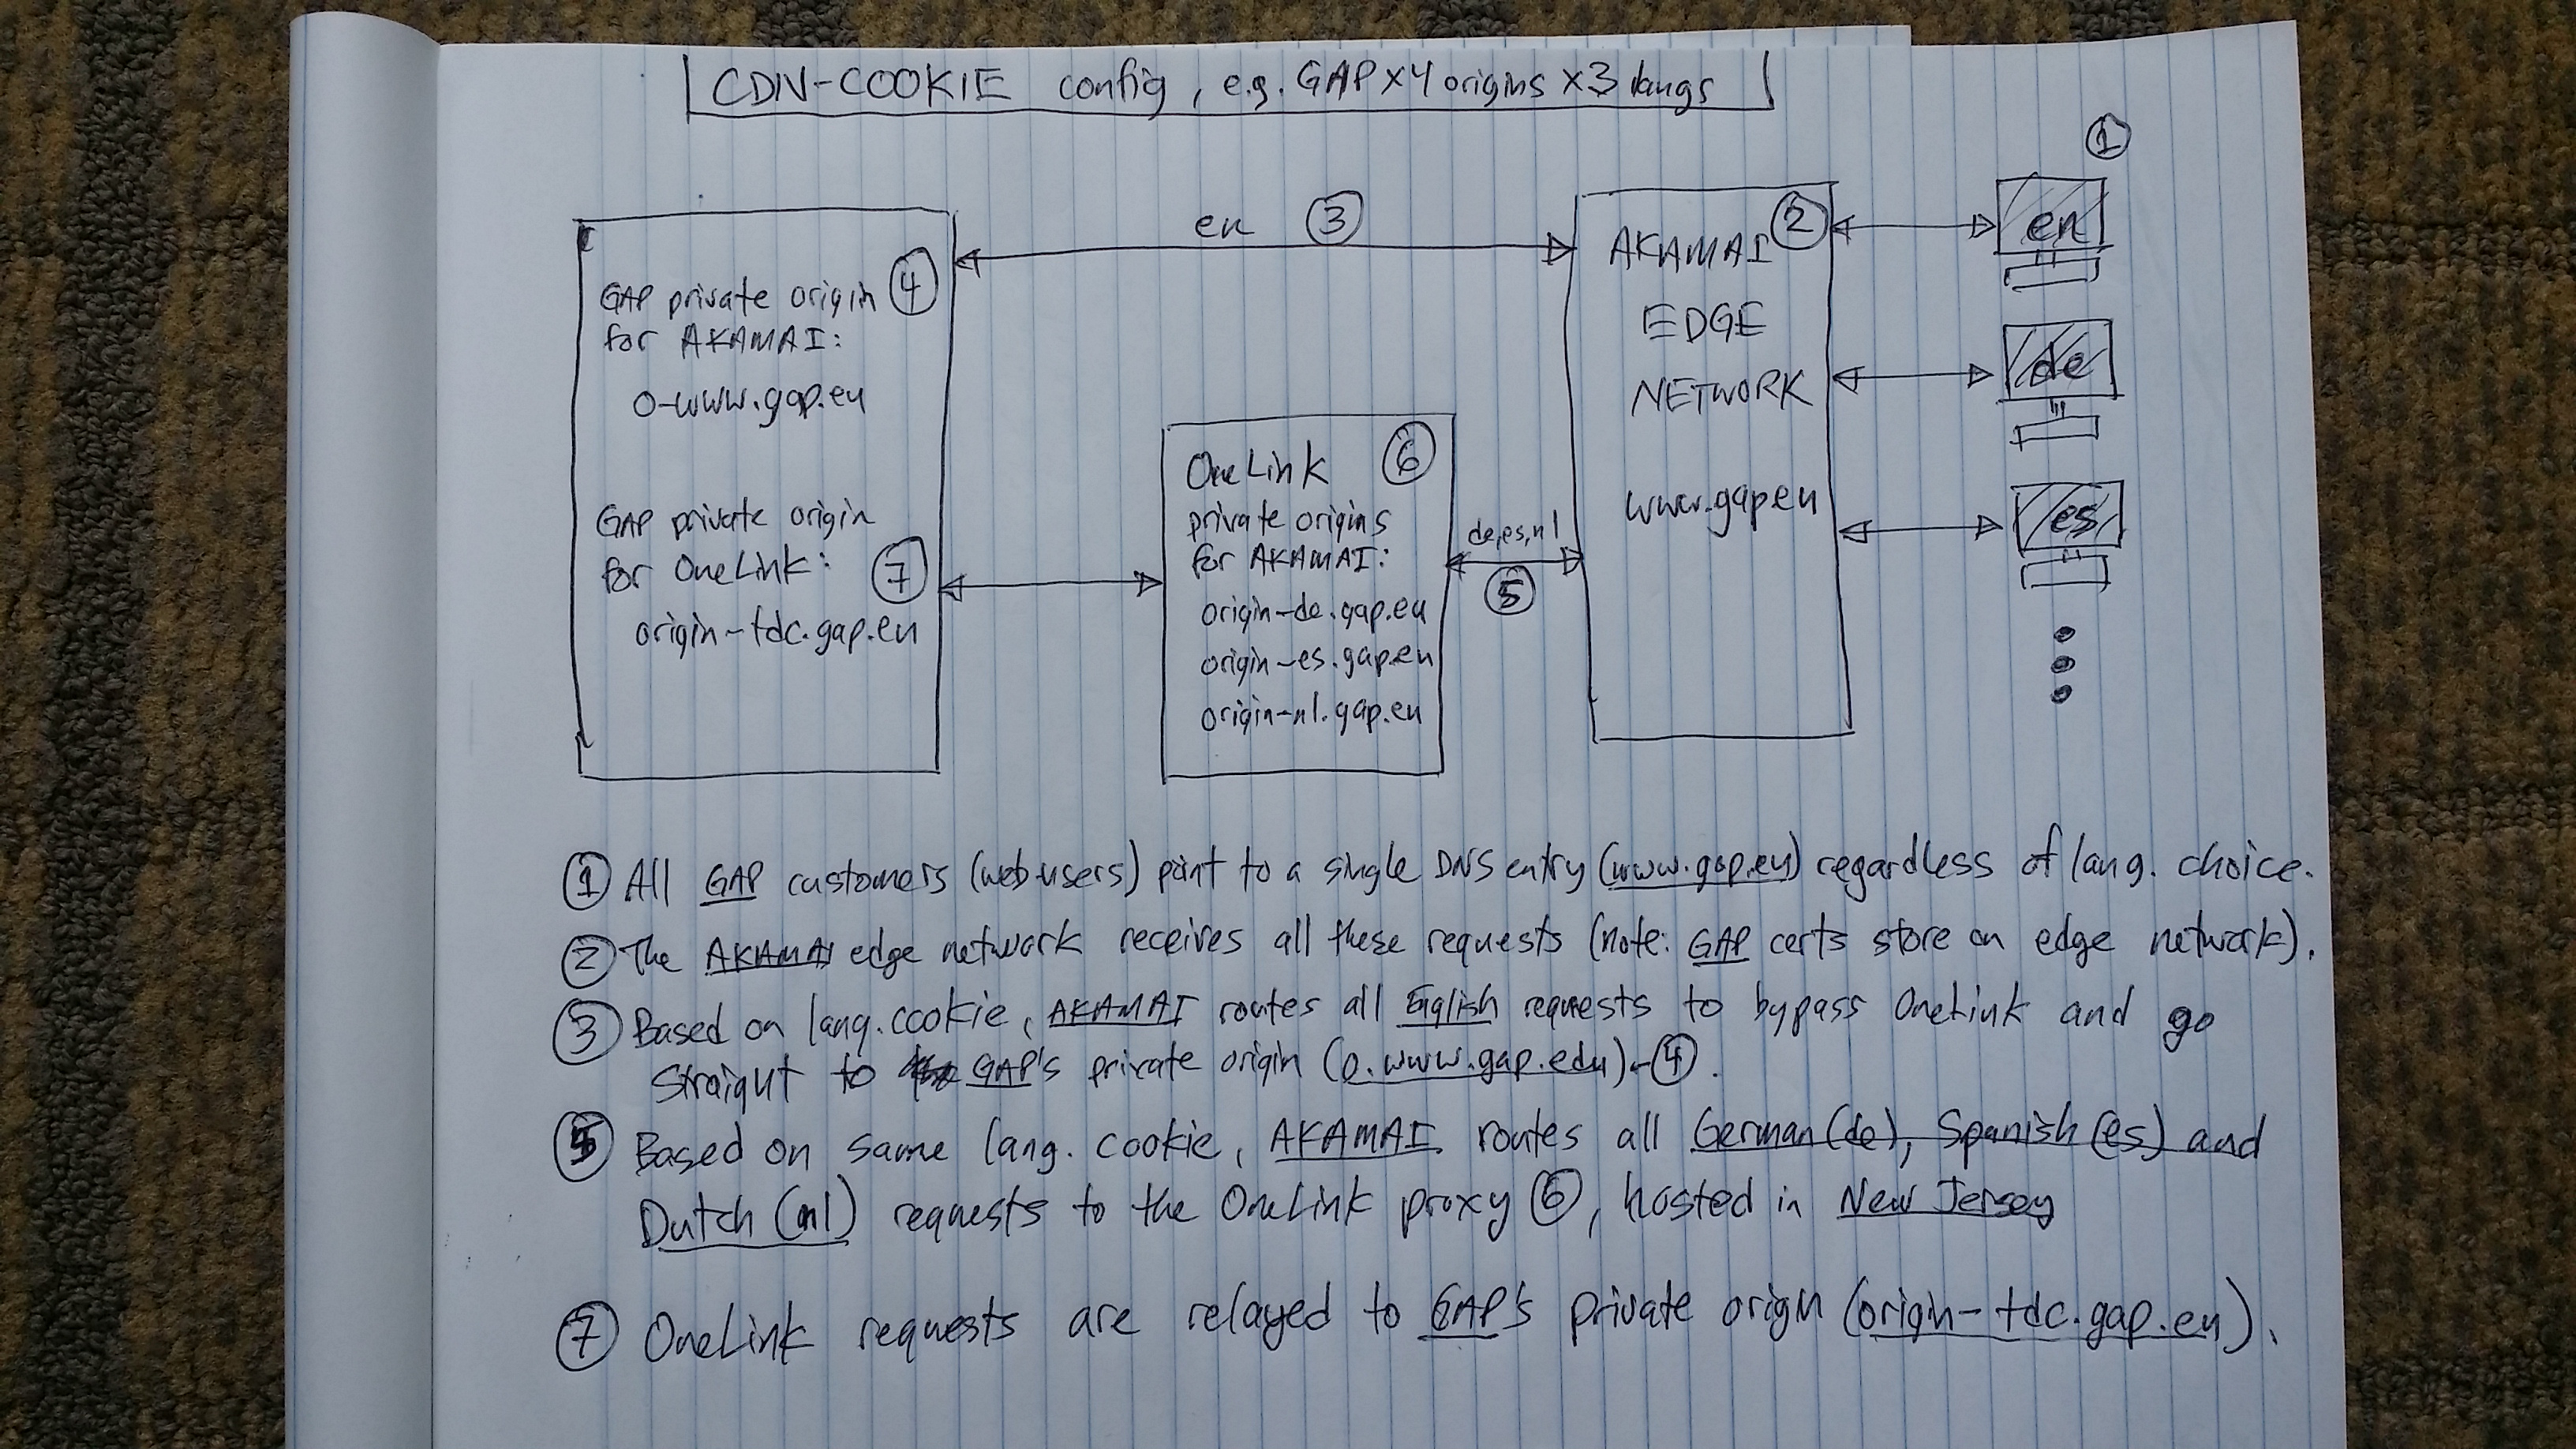 CDN-COOKIE config, e.g. GAP x 4 origins x 3 langs
1
en 3
AKAMAI 2
EDGE
NETWORK
www.gap.eu
en
de
es
GAP private origin 4
for AKAMAI:
o-www.gap.eu
GAP private origin
for OneLink: 7
origin-tdc.gap.eu
OneLink 6
private origins
for AKAMAI:
origin-de.gap.eu
origin-es.gap.eu
origin-nl.gap.eu
de,es,nl
5
1 All GAP customers (web users) point to a single DNS entry (www.gap.eu) regardless of lang. choice.
2 The AKAMAI edge network receives all these requests (note: GAP certs store on edge network).
3 Based on lang. cookie, AKAMAI routes all English requests to bypass OneLink and go
straight to GAP's private origin (o.www.gap.edu)-4.
5 Based on same lang. cookie, AKAMAI routes all German (de), Spanish (es) and
Dutch (nl) requests to the OneLink proxy 6, hosted in New Jersey
7 OneLink requests are relayed to GAP's private origin (origin-tdc.gap.eu).